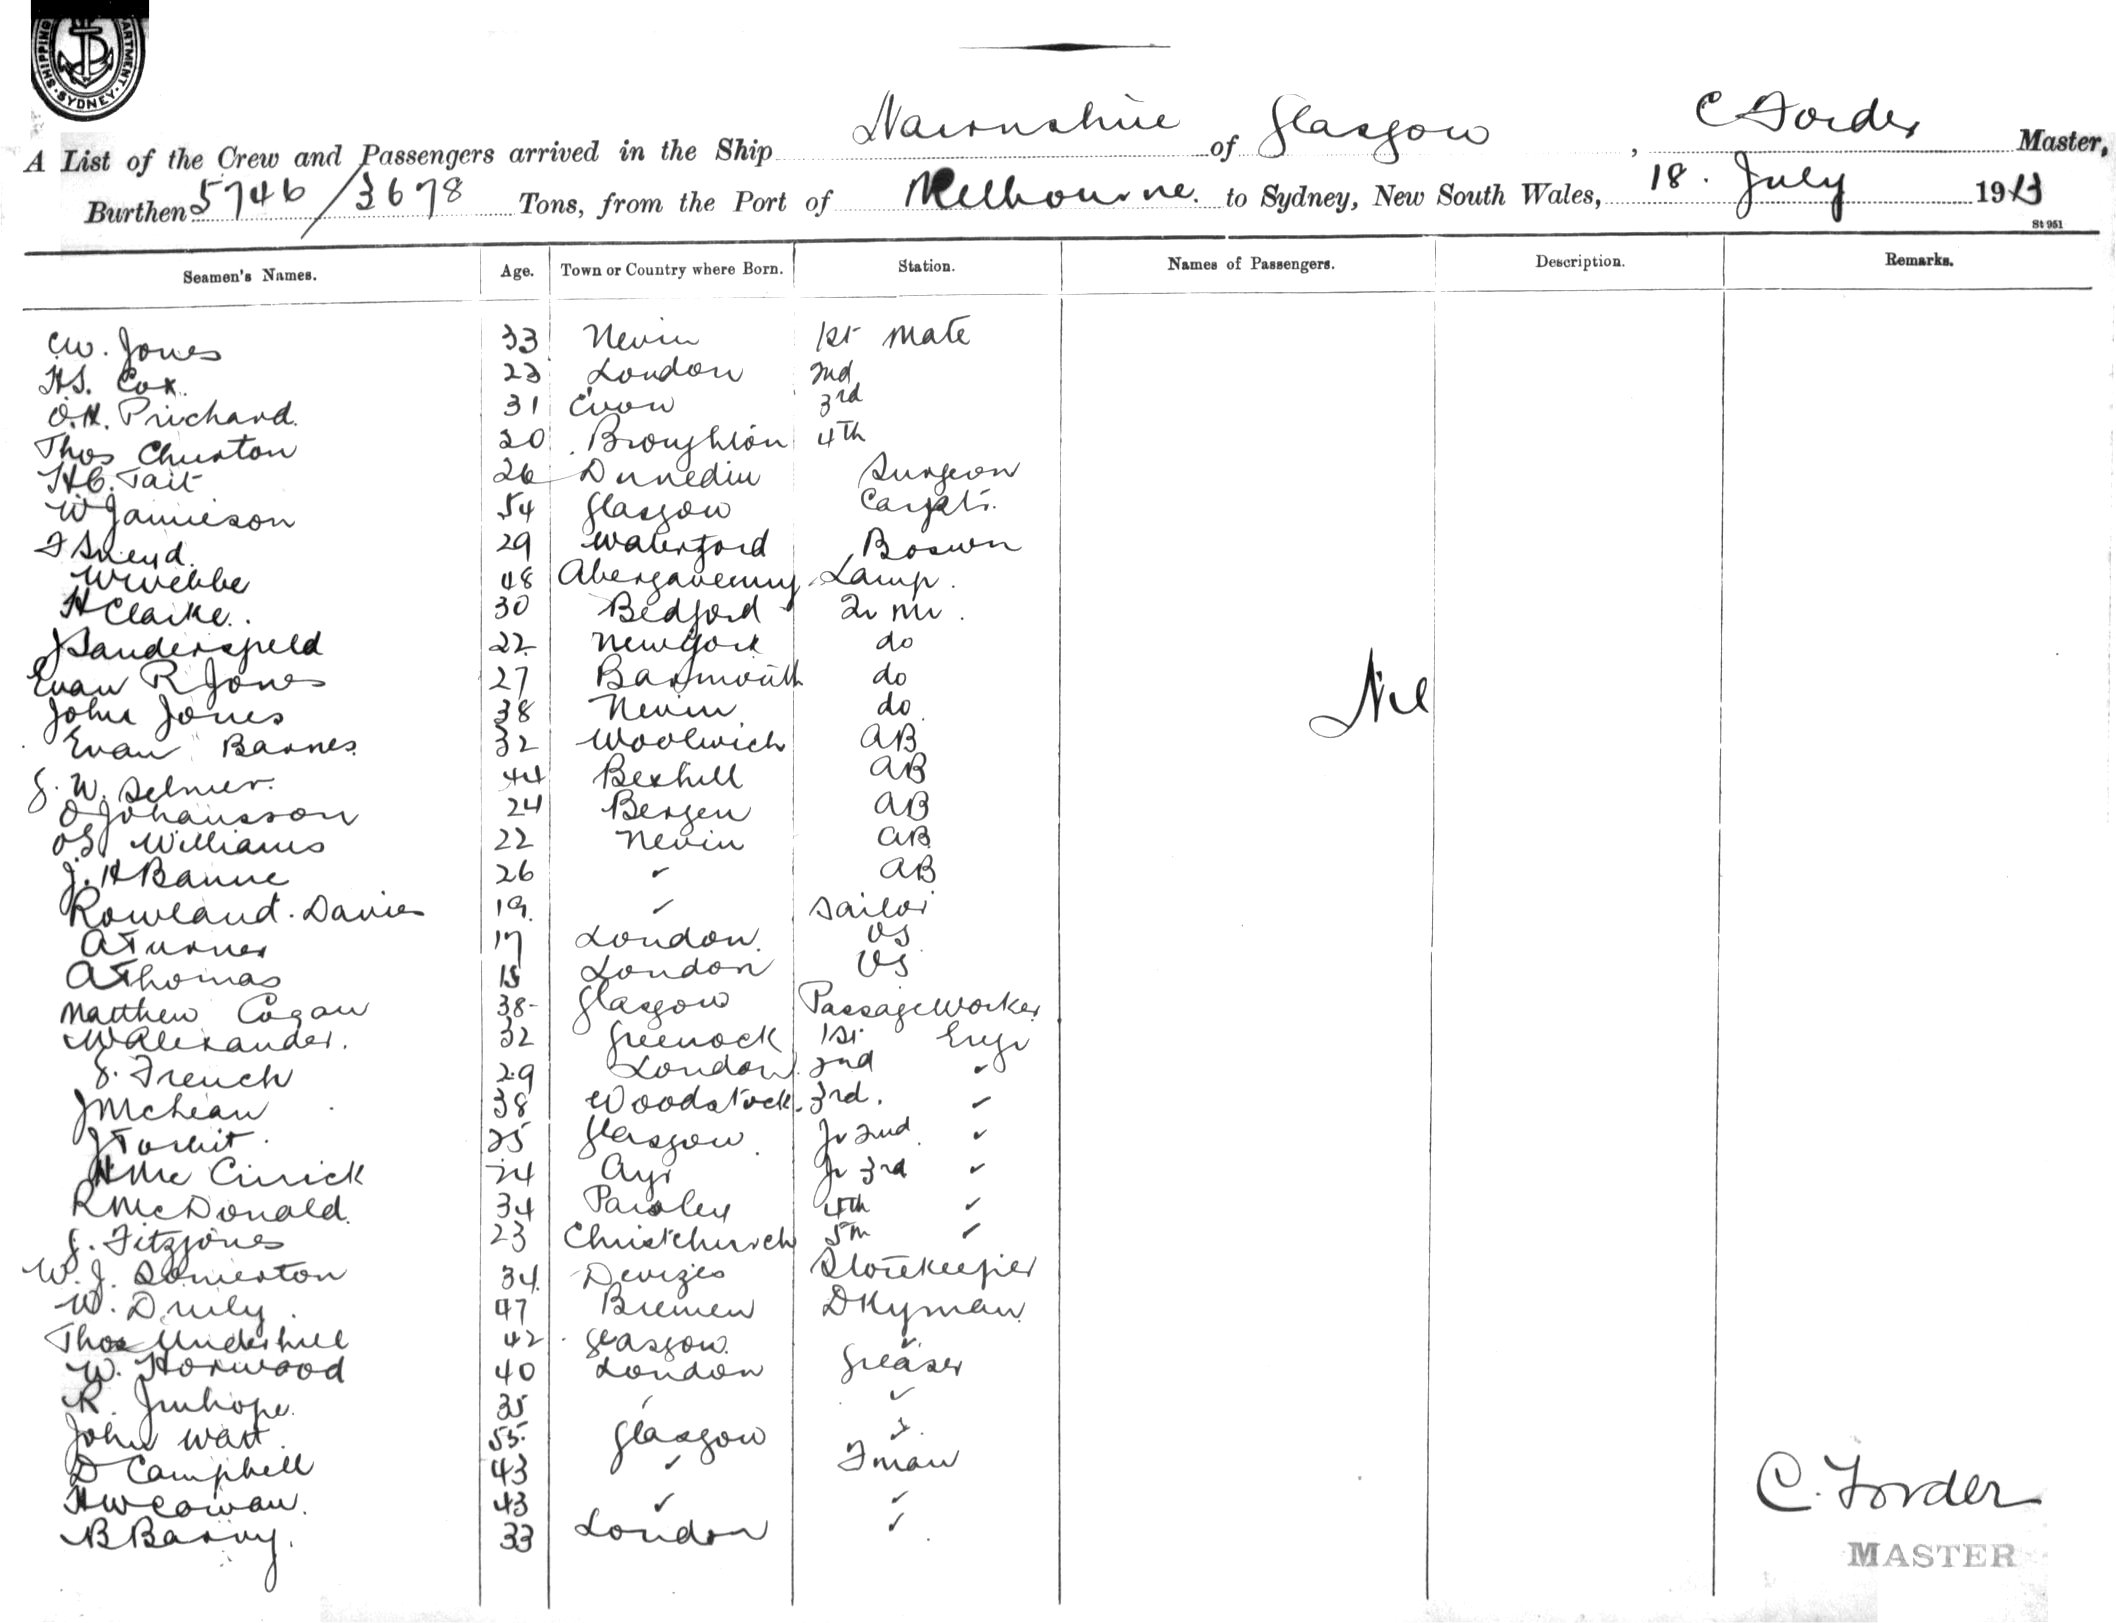 SHIPPING DEPARTMENT SYDNEY
A List of the Crew and Passengers arrived in the Ship Nairnshire of Glasgow, C Forder Master,
Burthen 5746/3678 Tons, from the Port of Melbourne. to Sydney, New South Wales, 18. July 1913
St 951
Seamen's Names. Age. Town or Country where Born. Station. Names of Passengers. Description. Remarks.
C.W. Jones 33 Nevin 1st Mate
H.S. Cox. 23 London 2nd
O.H. Prichard. 31 3rd
Thos Churton 20 Broughton 4th
H.C. Tait 26 Dunedin Surgeon
W Jamieson 54 Glasgow Carptr.
F Sneyd. 29 Waterford Boswn
W Webbe 48 Abergavenny Lamp.
H Clarke. 30 Bedford Qr Mr.
J Sandersfeld 22 New York do
Evan R Jones 27 Barmouth do
John Jones 38 Nevin do
Nil
Evan Barnes. 32 Woolwich AB
G. W. Selmer. 44 Bexhill AB
O Johansson 24 Bergen AB
Williams 22 Nevin AB
J. H 26 " AB
Rowland. Davies 19. " Sailor
A Turner 17 London. OS
A Thomas London OS
Matthew Cogan 38 Glasgow Passage Worker
W Alexander. 32 Greenock 1st Engr
G. French 29 London. 2nd "
J McLean 38 Woodstock. 3rd. "
J Torbit. 25 Glasgow. Jr 2nd. "
H Mc Cirrick 24 Ayr Jr 3rd "
R McDonald. 34 Paisley 4th "
J. Fitzjones 23 Christchurch 5th "
W. J. Somerton 34. Devizes Storekeeper
W. Druly. 47 Bremen DKyman
Thos Underhill 42 Glasgow. "
W. Horwood 40 London Greaser
R. 35 " "
John Watt. 55. Glasgow "
D Campbell 43 " Fman
H W Cowan. 43 " "
B Barry. 33 London "
C. Forder
MASTER